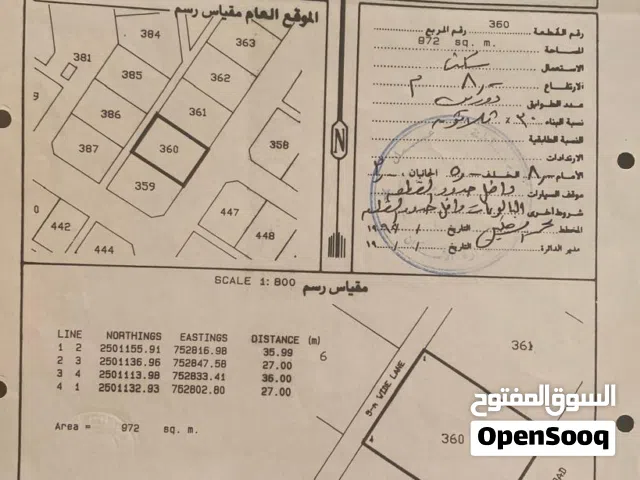 الموقع العام مقياس رسم
384
363
381
385
362
386
361
387
360
358
359
447
442
448
444
N
رقم القطعة 360 رقم المربع
المساحة 972 sq. m.
الاستعمال سكني
الارتفاع ٨ م
عدد الطوابق دورين
نسبة البناء ٣٠ ٪
النسبة الطابقية
الارتدادات
الأمام الخلف ٥ الجانبان
موقف السيارات داخل حدود القطعة
شروط أخرى البالونات داخل حدود القطعة
المخطط التاريخ / / ١٩
مدير الدائرة التاريخ / / ١٩
SCALE 1:800 مقياس رسم
LINE NORTHINGS EASTINGS DISTANCE (m)
1 2 2501155.91 752816.98 35.99
2 3 2501136.96 752847.58 27.00
3 4 2501113.98 752833.41 36.00
4 1 2501132.93 752802.80 27.00
Area = 972 sq. m.
6
5-m WIDE LANE
361
360
السوق المفتوح
OpenSooq